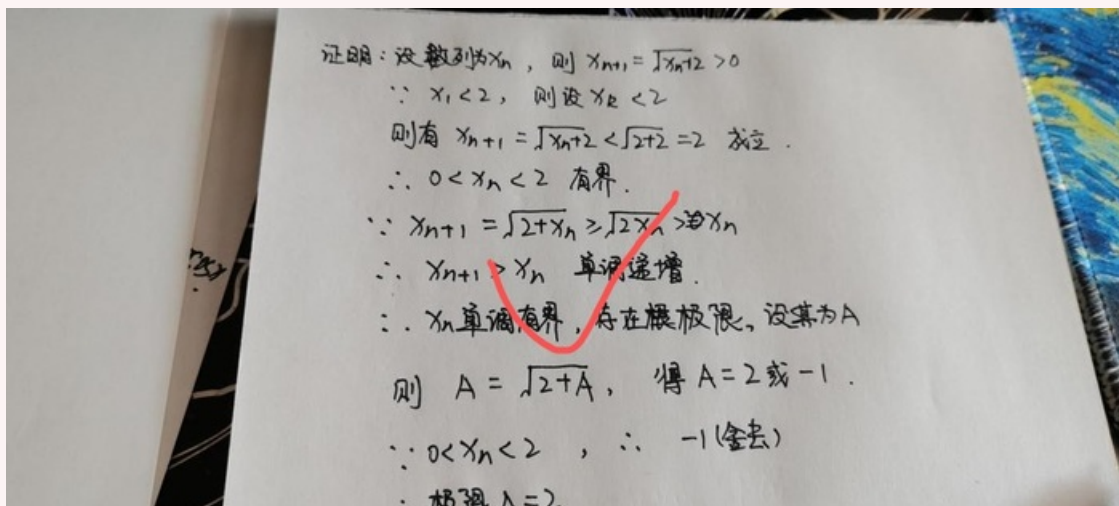 证明：设数列为xₙ，则 xₙ₊₁=√(xₙ+2)>0
∵ x₁<2，则设 xₖ<2
则有 xₙ₊₁=√(xₙ+2)<√(2+2)=2 成立.
∴ 0<xₙ<2 有界.
∵ xₙ₊₁=√(2+xₙ)≥√(2xₙ)>xₙ
∴ xₙ₊₁>xₙ 单调递增.
∴ xₙ单调有界，存在极限。设其为A
则 A=√(2+A)，得 A=2或-1.
∵ 0<xₙ<2，∴ -1(舍去)
∴ 极限A=2